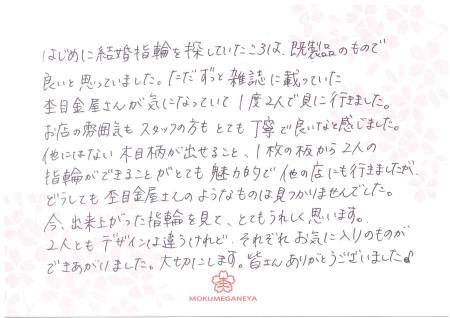 はじめに結婚指輪を探していたころは、既製品のもので
良いと思っていました。ただずっと雑誌に載っていた
杢目金屋さんが気になっていて1度2人で見に行きました。
お店の雰囲気もスタッフの方もとても丁寧で良いなと感じました。
他にはない木目柄が出せること、1枚の板から2人の
指輪ができることがとても魅力的で他の店にも行きましたが、
どうしても杢目金屋さんのようなものは見つかりませんでした。
今、出来上がった指輪を見て、とてもうれしく思います。
2人ともデザインは違うけれど、それぞれお気に入りのものが
できあがりました。大切にします。皆さんありがとうございました♪
MOKUMEGANEYA